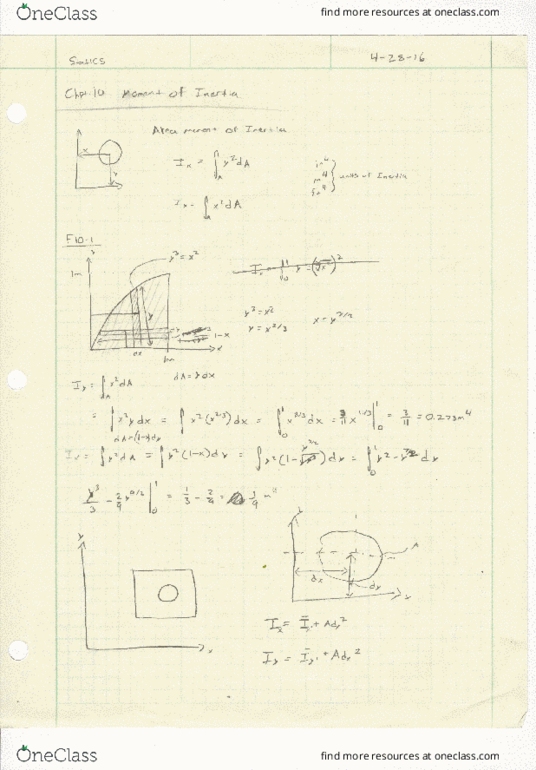 OneClass find more resources at oneclass.com
Statics 4-28-16
Chpt. 10 Moment of Inertia
Area moment of Inertia
Ix = ∫A y²dA
in⁴
m⁴ } units of Inertia
Iy = ∫A x²dA
F10-1
y³ = x²
1m
y
1-x
dx 1m x
y³=x²
y = x^2/3 x = y^3/2
Iy = ∫A x²dA dA = y dx
= ∫ x²y dx = ∫ x²(x^2/3) dx = ∫₀¹ x^8/3 dx = 3/11 x^11/3 |₀¹ = 3/11 = 0.273m⁴
dA=(1-x)dy
Ix = ∫ y²dA = ∫ y²(1-x)dy = ∫ y²(1- y^3/2) dy = ∫₀¹ y² - y^7/2 dy
y³/3 - 2/9 y^9/2 |₀¹ = 1/3 - 2/9 = 1/9 m⁴
y
x
y
A
dx
dy
x
Ix = Īx' + Ady²
Iy = Īy' + Adx²
OneClass find more resources at oneclass.com